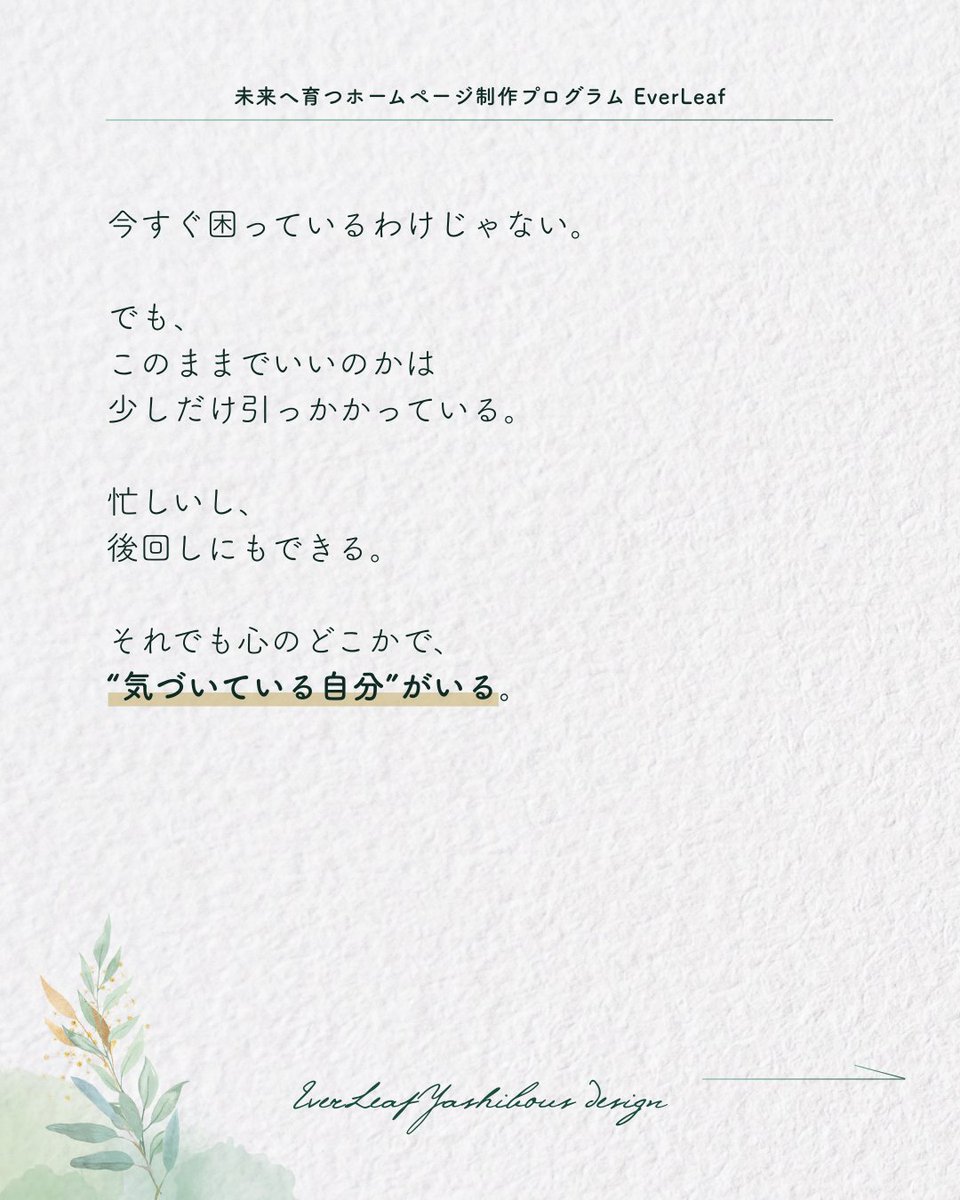 未来へ育つホームページ制作プログラム EverLeaf
今すぐ困っているわけじゃない。
でも、
このままでいいのかは
少しだけ引っかかっている。
忙しいし、
後回しにもできる。
それでも心のどこかで、
“気づいている自分”がいる。
EverLeaf Yashibous design